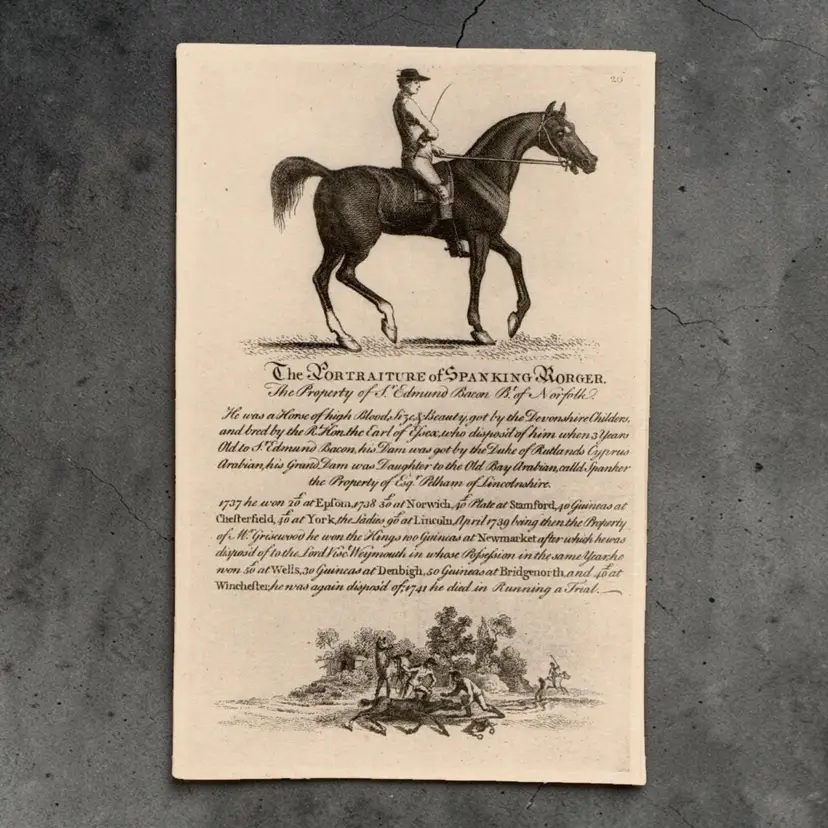 20
The PORTRAITURE of SPANKING RORGER.
The Property of Sr. Edmund Bacon Bt. of Norfolk.
He was a Horse of high Blood, Size, & Beauty, got by the Devonshire Childers,
and bred by the Rt. Hon. the Earl of Essex, who dispos'd of him when 3 Years
Old to Sr. Edmund Bacon, his Dam was got by the Duke of Rutlands Cyprus
Arabian, his Grand Dam was Daughter to the Old Bay Arabian, calld Spanker
the Property of Esqr. Pelham of Lincolnshire.
1737 he won 20£ at Epsom, 1738 30£ at Norwich, 40£ Plate at Stamford, 40 Guineas at
Chesterfield, 40£ at York, the Ladies 90£ at Lincoln, April 1739 being then the Property
of Mr. Grisewood he won the Kings 100 Guineas at Newmarket after which he was
dispos'd of to the Lord Visct. Weymouth in whose Possession in the same Year, he
won 50£ at Wells, 30 Guineas at Denbigh, 50 Guineas at Bridgenorth, and 40£ at
Winchester, he was again dispos'd of; 1741 he died in Running a Trial.